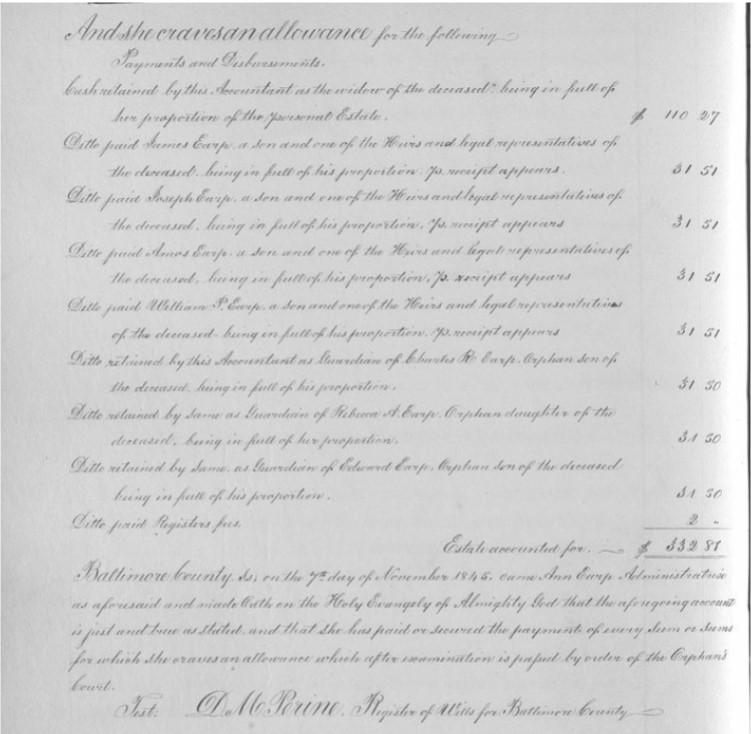 And she craves an allowance for the following
Payments and Disbursements.
Cash retained by this Accountant as the widow of the deceased. being in full of
her proportion of the personal Estate. $ 110 27
Ditto paid James Earp, a son and one of the Heirs and legal representatives of
the deceased, being in full of his proportion, pr. receipt appears. 31 51
Ditto paid Joseph Earp, a son and one of the Heirs and legal representatives of
the deceased, being in full of his proportion, pr. receipt appears 31 51
Ditto paid Amos Earp, a son and one of the Heirs and legal representatives of
the deceased, being in full of his proportion, pr. receipt appears 31 51
Ditto paid William P. Earp, a son and one of the Heirs and legal representatives
of the deceased being in full of his proportion. pr. receipt appears 31 51
Ditto retained by this Accountant as Guardian of Charles R Earp. Orphan son of
the deceased, being in full of his proportion. 31 50
Ditto retained by same as Guardian of Rebecca A. Earp. Orphan daughter of the
deceased, being in full of her proportion. 31 50
Ditto retained by same, as Guardian of Edward Earp. Orphan son of the deceased
being in full of his proportion. 31 50
Ditto paid Registers fees. 2 "
Estate accounted for. $ 332 81
Baltimore County, Ss; on the 7th day of November 1845. came Ann Earp Administratrix
as aforesaid and made Oath on the Holy Evangely of Almighty God that the aforegoing account
is just and true as stated, and that she has paid or secured the payment of every Sum or Sums
for which she craves an allowance which after examination is passed by order of the Orphan's
Court.
Test: D. M. Perine, Register of Wills for Baltimore County